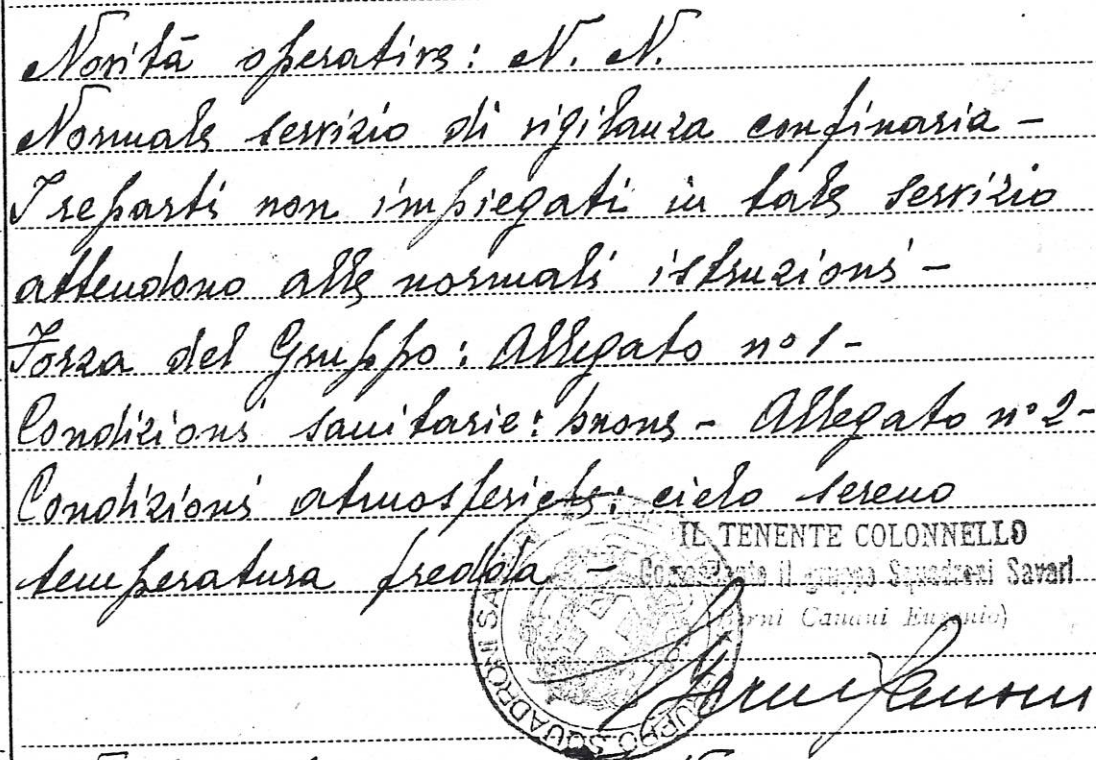 Novità operative: N. N.
Normale servizio di vigilanza confinaria -
I reparti non impiegati in tale servizio
attendono alle normali istruzioni -
Forza del Gruppo: Allegato n° 1 -
Condizioni sanitarie: buone - Allegato n° 2 -
Condizioni atmosferiche: cielo sereno
temperatura fredda -
IL TENENTE COLONNELLO
Comandante il gruppo Squadroni Savari
(Berni Canani Eugenio)
GRUPPO SQUADRONI SAVARI
Berni Canani